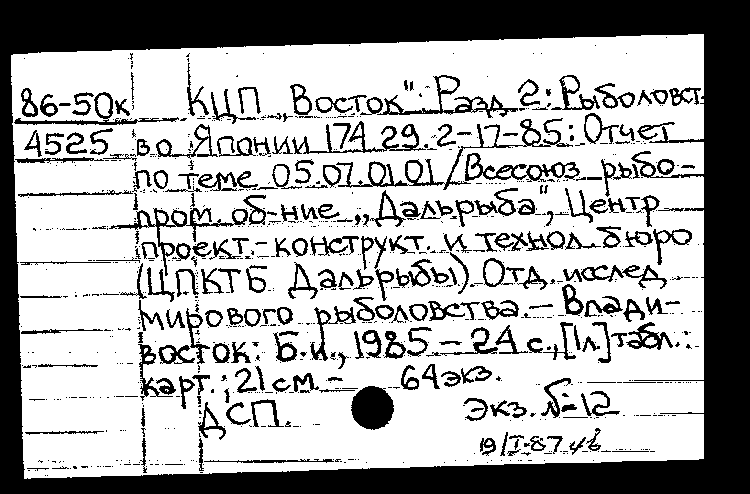 86-50к КЦП „Восток". Разд. 2: Рыболовст-
4525 во Японии 174.29.2-17-85: Отчет
по теме 05.07.01.01/Всесоюз. рыбо-
пром. об-ние „Дальрыба", Центр.
проект.-конструкт. и технол. бюро
(ЦПКТБ Дальрыбы) Отд. исслед.
мирового рыболовства. — Влади-
восток: Б.и., 1985 — 24 с., [1л.] табл.:
карт.; 21 см. — 64 экз.
ДСП. Экз. № 12
19/I-87